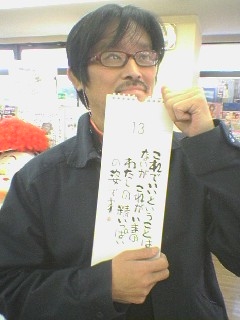 13
これでいいということは
ないがこれがいまの
わたしの精いっぱい
の姿です